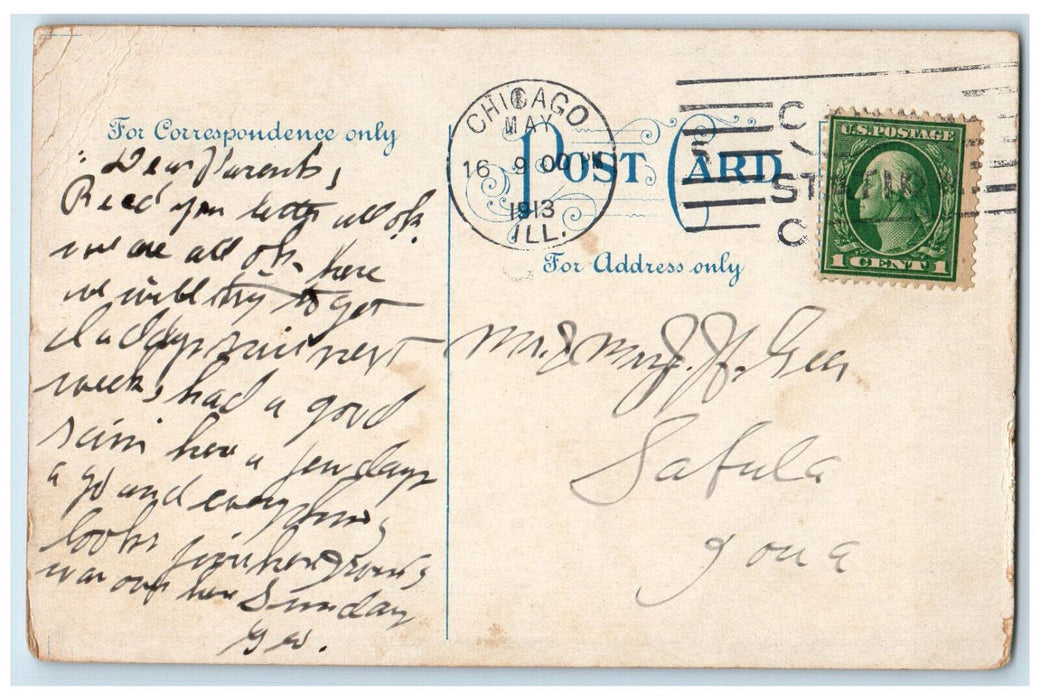 For Correspondence only
Dear Parents,
Recd your letter all ok.
we are all ok here
we will try to get
daddys suit next
week, had a good
rain here a few days
a go and everything
looks fine here
was over here Sunday
Geo.
CHICAGO
MAY
16 9 00 PM
1913
ILL.
POST CARD
For Address only
U.S. POSTAGE
1 CENT 1
Mr. & Mrs. J. H.
Sabula
Iowa